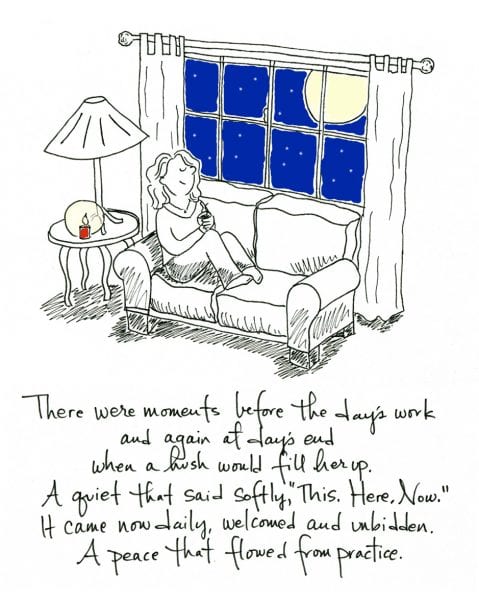 There were moments before the day's work
and again at day's end
when a hush would fill her up.
A quiet that said softly, "This. Here. Now."
It came now daily, welcomed and unbidden.
A peace that flowed from practice.